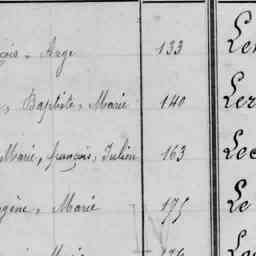 Ange 133 Le
, Baptiste, Marie 140 Ler
Marie, françois, Julien 163 Lec
gène, Marie 175 Le